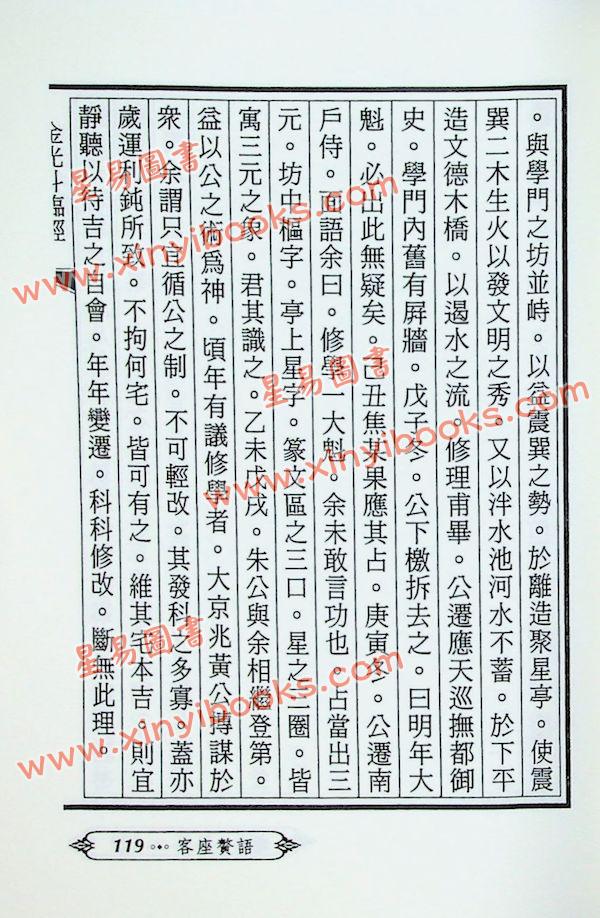 。與學門之坊並峙。以益震巽之勢。於離造聚星亭。使震
巽二木生火以發文明之秀。又以泮水池河水不蓄。於下平
造文德木橋。以遏水之流。修理甫畢。公遷應天巡撫都御
史。學門內舊有屏牆。戊子冬。公下檄拆去之。曰明年大
魁。必出此無疑矣。己丑焦某果應其占。庚寅冬。公遷南
戶侍。面語余曰。修學一大魁。余未敢言功也。占當出三
元。坊中樞字。亭上星字。篆文區之三口。星之三圈。皆
寓三元之象。君其識之。乙未戊戌。朱公與余相繼登第。
益以公之術爲神。頃年有議修學者。大京兆黃公搏謀於
衆。余謂只宜循公之制。不可輕改。其發科之多寡。蓋亦
歲運利鈍所致。不拘何宅。皆可有之。維其宅本吉。則宜
靜聽以待吉之自會。年年變遷。科科修改。斷無此理。
金光斗臨經
119 客座贅語
星易圖書
www.xinyibooks.com
星易圖書
www.xinyibooks.com
星易圖書
www.xinyibooks.com